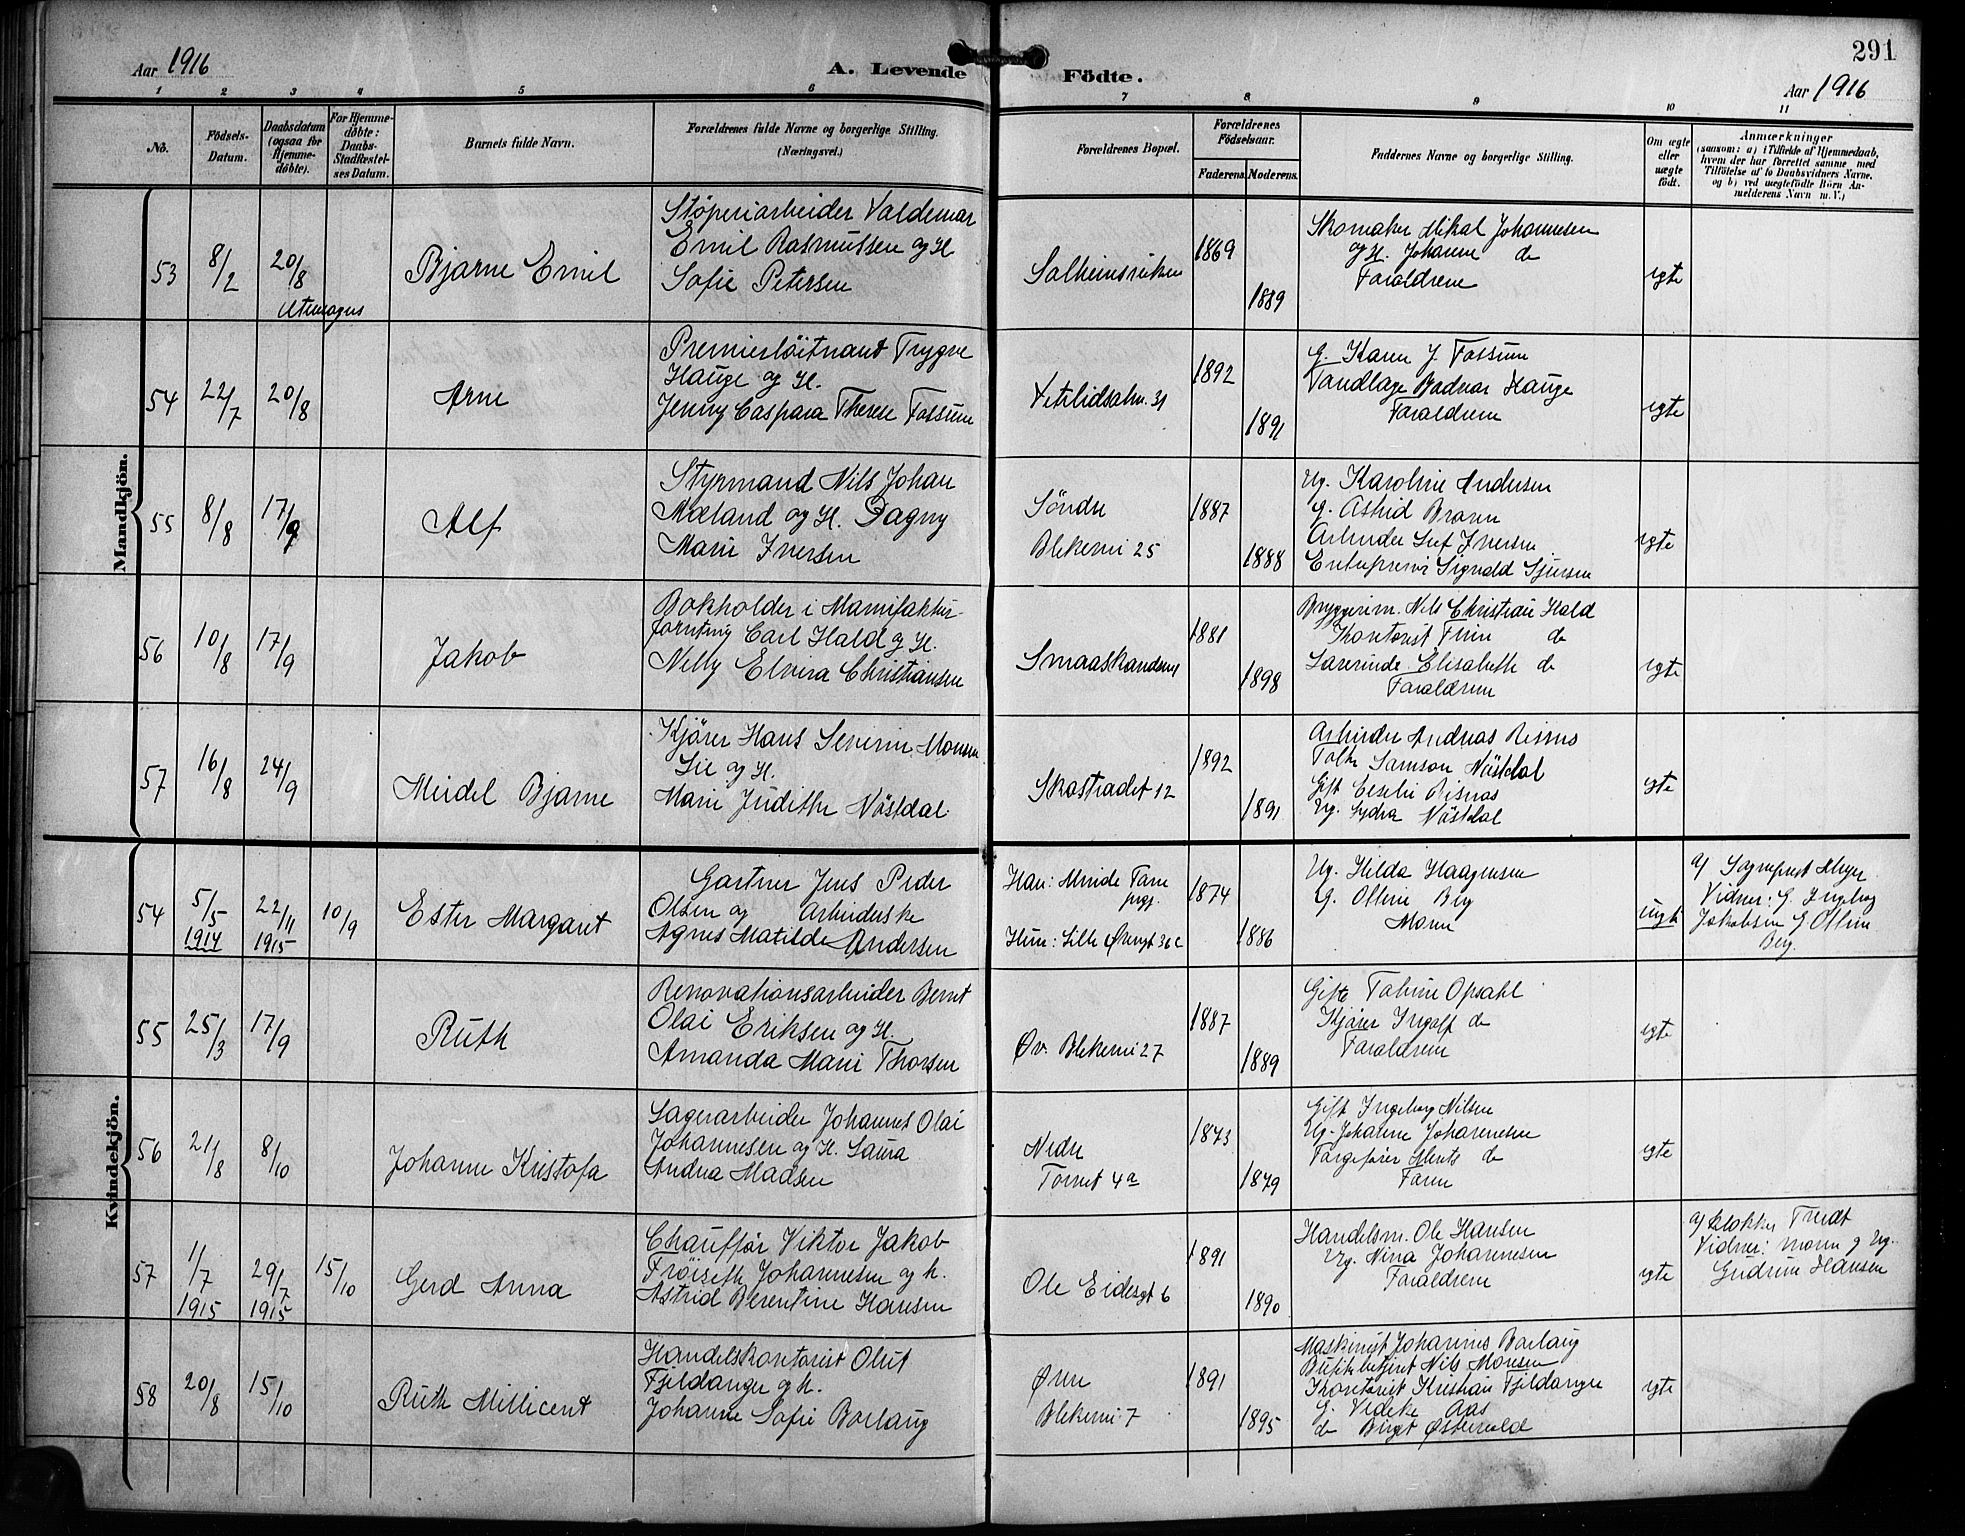 Aar 1916
A. Levende Födte.
291
Aar 1916
1 2 3 4 5 6 7 8 9 10 11
No.
Födsels-
Datum.
Daabsdatum
(ogsaa for
Hjemme-
døbte).
For Hjemme-
døbte:
Daabs-
Stadfæstel-
ses Datum.
Barnets fulde Navn.
Forældrenes fulde Navne og borgerlige Stilling.
(Næringsvei.)
Forældrenes Bopæl.
Forældrenes
Födselsaar.
Faderens. Moderens.
Faddernes Navne og borgerlige Stilling.
Om ægte
eller
uægte
født.
Anmærkninger
(saasom: a) i Tilfælde af Hjemmedaab,
hvem der har forrettet samme med
Tilföielse af to Daabsvidners Navne.
og b) ved uægtefödte Börn An-
melderens Navn m. V.)
Mandkjön.
53
8/2
20/8
Bjarne Emil
Støperiarbeider Valdemar
Emil Rasmussen og H.
Sofie Petersen
Solheimsviken
1869
1889
Skomaker Mikal Johannesen
og H. Johanne do
Forældrene
egte
54
22/7
20/8
Arne
Premierløitnant Trygve
Hauge og H.
Jenny Caspara Therese Fossum
Vetrlidsalm. 31
1892
1891
G. Karen J. Fossum
Tandlæge Hauge
Forældrene
egte
55
8/8
17/9
Alf
Styrmand Nils Johan
Mæland og H. Dagny
Marie Iversen
Söndre
Blekevei 25
1887
1888
Ug. Karoline Andersen
G. Astrid
Arbeider Leif Iversen
Entreprenør Sigvald Sjursen
egte
56
10/8
17/9
Jakob
Bokholder i Manufaktur-
forretning Carl Hald og H.
Nelly Elvira Christiansen
Smaaskandsen
1881
1898
Bryggerim. Nils Christian Hald
Kontorist Finn do
Elisabeth do
Forældrene
egte
57
16/8
24/9
Meidel Bjarne
Kjører Hans Severin Monsen
Lie og H.
Marie Judithe Nøstdal
Skostrædet 12
1892
1891
Arbeider Andreas Risnes
Samson Nøstdal
Gift Cecilie Risnes
Ug. Lydia Nøstdal
egte
Kvindekjön.
54
5/5
1914
22/11
1915
10/9
Ester Margaret
Gartner Jens Peder
Olsen og Arbeiderske
Agnes Matilde Andersen
Han: Minde
Hun: Lille Øvregt 36c
1874
1886
Ug. Hilda Haagensen
G. Oline Berg
Moren
uegte
af Sogneprest Meyer
Vidner: G. Ingeborg
Jakobsen G Oline
Berg.
55
25/3
17/9
Ruth
Renovationsarbeider Bernt
Olai Eriksen og H.
Amanda Marie Thorsen
Øv. Blekevei 27
1887
1889
Gifte Tobine Opsahl
Kjører Ingolf do
Forældrene
egte
56
21/8
8/10
Johanne Kristofa
Lagerarbeider Johannes Olai
Johannesen og H. Laura
Andrea Madsen
Nedre
4a
1873
1879
Gift Ingeborg Nilsen
Ug. Johanne Johannesen
do
Faren
egte
57
1/7
1915
29/7
1915
15/10
Gerd Anna
Chauffør Viktor Jakob
Frøiseth Johannesen og h.
Astrid Berentine Hansen
Ole Eidesgt 6
1891
1890
Handelsm. Ole Hansen
Ug. Nina Johannesen
Forældrene
egte
af klokker Tveit
Vidner: moren og Ug.
Gudrun Hansen
58
20/8
15/10
Ruth Millicent
Handelskontorist Oluf
Fjeldanger og h.
Johanne Sofie Borlaug
Øvre
Blekevei 7
1891
1895
Maskinist Johannes Borlaug
Butikbetjent Nils Monsen
Kontorist Kristian Fjeldanger
G. Videke Aas
do Birgit Østervold
egte